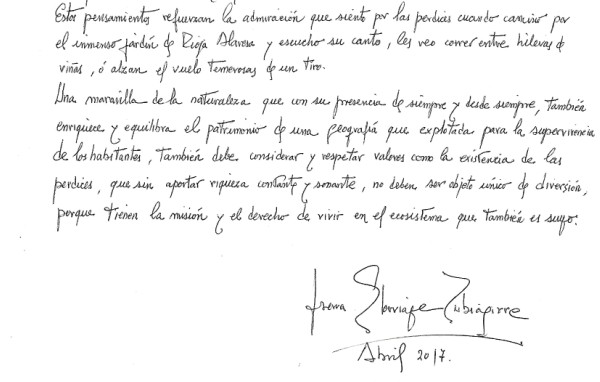 Estos pensamientos refuerzan la admiración que siento por las perdices cuando camino por
el inmenso jardín de Rioja Alavesa y escucho su canto, les veo correr entre hileras de
viñas, ó alzan el vuelo temerosas de un tiro.
Una maravilla de la naturaleza que con su presencia de siempre y desde siempre, también
enriquece y equilibra el patrimonio de una geografía que explotada para la supervivencia
de los habitantes, también debe considerar y respetar valores como la existencia de las
perdices, que sin aportar riqueza contante y sonante, no deben ser objeto único de diversión,
porque tienen la misión y el derecho de vivir en el ecosistema que también es suyo.
Abril 2017.